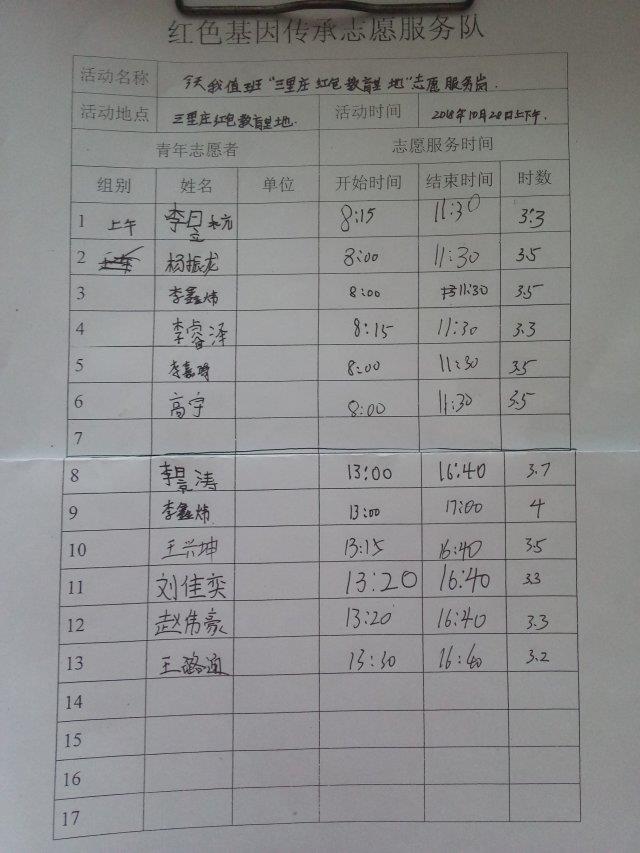 红色基因传承志愿服务队
活动名称 今天我值班"三里庄红色教育基地"志愿服务岗.
活动地点 三里庄红色教育基地. 活动时间 2018年10月28日上下午.
青年志愿者 志愿服务时间
组别 姓名 单位 开始时间 结束时间 时数
1 上午 8:15 11:30 3.3
2 杨振龙 8:00 11:30 3.5
3 李鑫炜 8:00 11:30 3.5
4 李睿泽 8:15 11:30 3.3
5 8:00 11:30 3.5
6 高宇 8:00 11:30 3.5
7
8 李景涛 13:00 16:40 3.7
9 李鑫炜 13:00 17:00 4
10 王兴坤 13:15 16:40 3.5
11 刘佳奕 13:20 16:40 3.3
12 赵伟豪 13:20 16:40 3.3
13 13:30 16:40 3.2
14
15
16
17